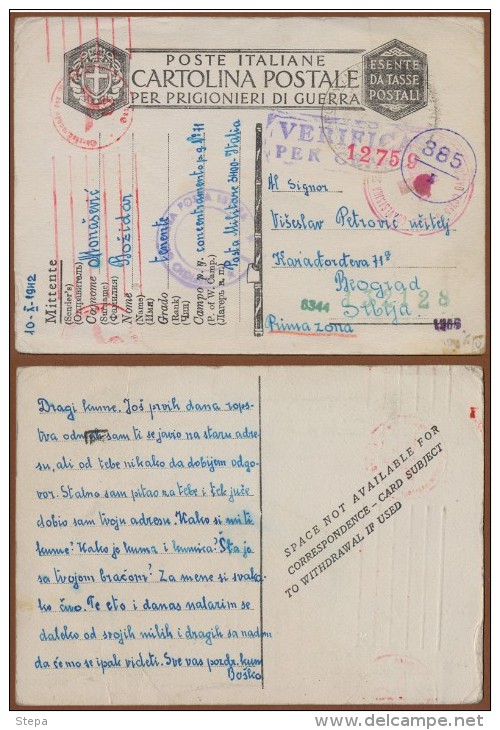 POSTE ITALIANE
CARTOLINA POSTALE
PER PRIGIONIERI DI GUERRA
ESENTE
DA TASSE
POSTALI
VERIFIC
PER
12759
385
10-X-1942
Mittente
(Sender's)
(Отправитель)
Cognome Monašević
(Surname)
(Фамилия)
Nome Božidar
(Name)
(Имя)
Grado tenente
(Rank)
(Чин)
Campo p. g. concentramento p.g. No 71
(P. of W. Camp.)
(Лагерь в. п.)
Posta Militare 3400-Italia
Al Signor
Višeslav Petrović učitelj
Karađorđeva 71
Beograd
Srbija
Prima zona
6344
128
1966
Dragi kume. Još prvih dana rops-
tva odmah sam ti se javio na staru adre-
su, ali od tebe nikako da dobijem odgo-
vor. Stalno sam pitao za tebe i tek juče
dobio sam tvoju adresu. Kako si mi ti
kume? Kako je kuma i kumica? Šta je
sa tvojom braćom? Za mene si svaka-
ko čuo. Te eto i danas nalazim se
daleko od svojih milih i dragih sa nadom
da ćemo se ipak videti. Sve vas pozdr. kum
Boško
SPACE NOT AVAILABLE FOR
CORRESPONDENCE - CARD SUBJECT
TO WITHDRAWAL IF USED
Stepa
delcampe.net